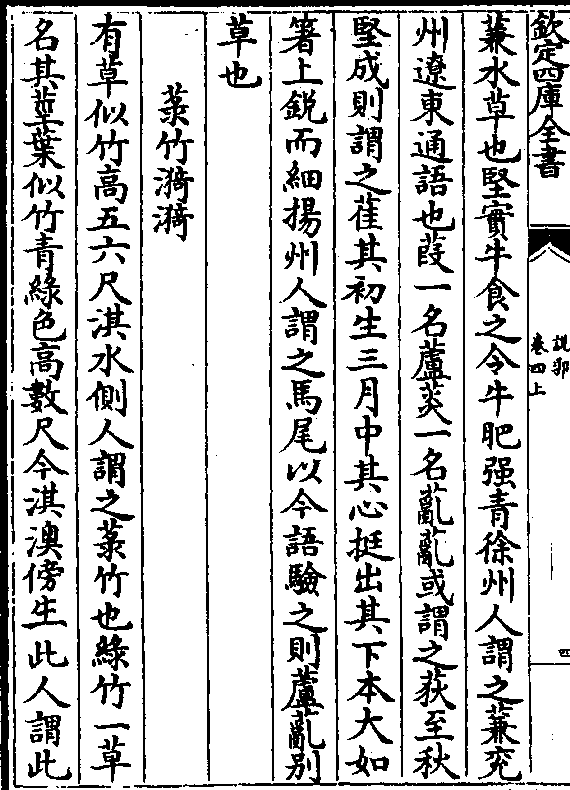 欽定四庫全書
說郛
卷四上
四
蒹水草也堅實牛食之令牛肥强青徐州人謂之蒹兖
州遼東通語也葭一名蘆菼一名薍薍或謂之荻至秋
堅成則謂之萑其初生三月中其心挺出其下本大如
箸上銳而細揚州人謂之馬尾以今語驗之則蘆薍别
草也
菉竹漪漪
有草似竹高五六尺淇水側人謂之菉竹也綠竹一草
名其莖葉似竹青綠色高數尺今淇澳傍生此人謂此